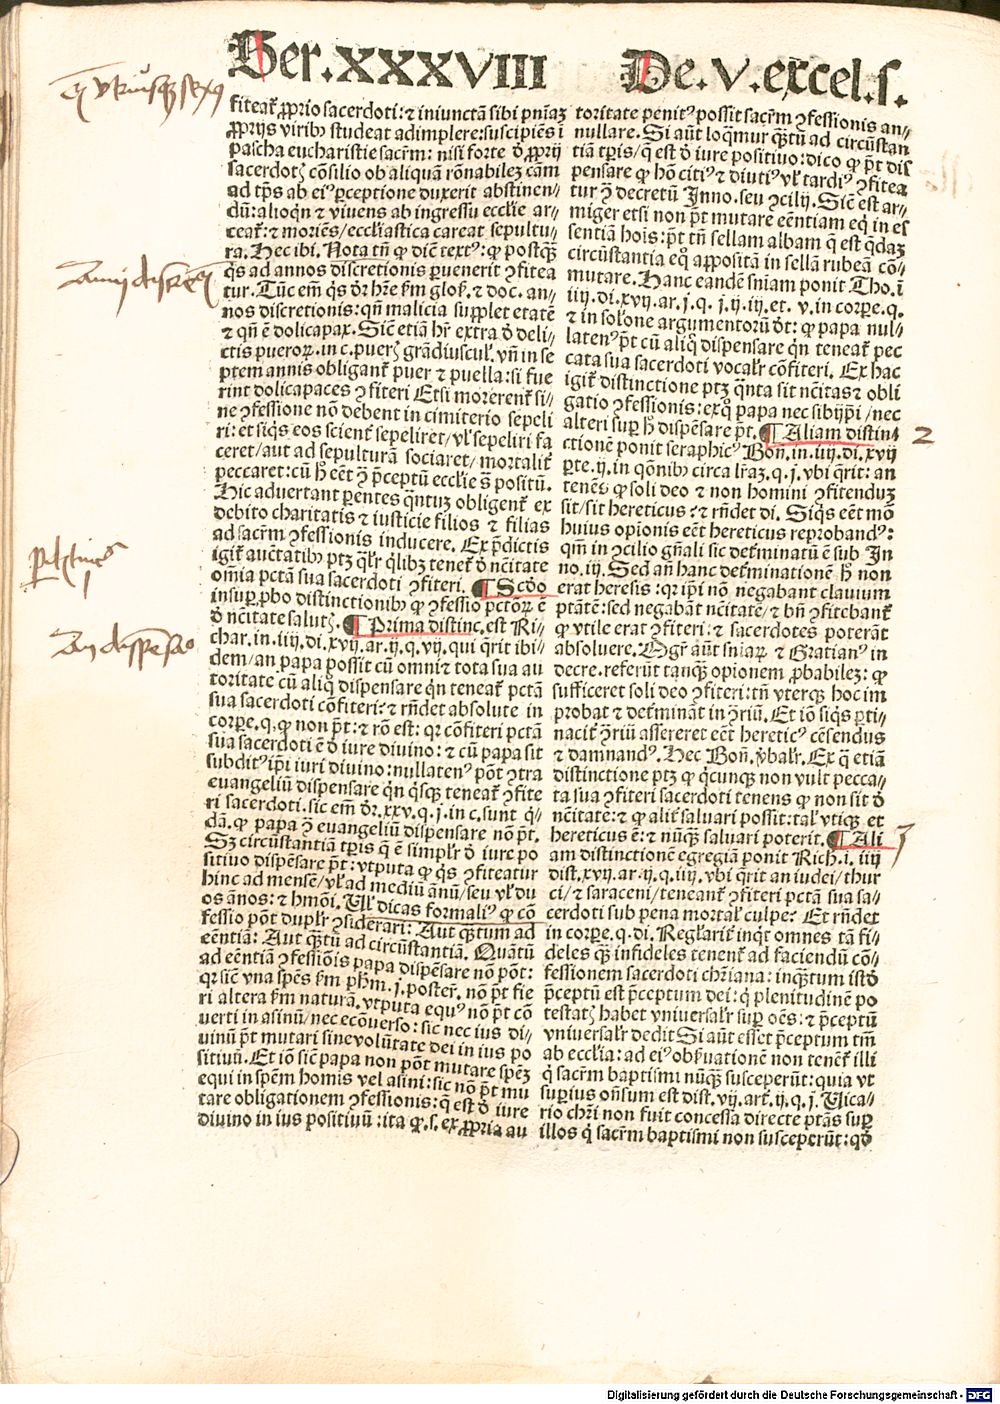 Ser. XXXVIII De. v. excel. s.
fiteat̄ ꝓprio sacerdoti: ⁊ iniunctā sibi pn̄iaꝫ
ꝓprijs viribꝰ studeat adimplere: suscipiēs ī
pascha eucharistie sacr̄m: nisi forte ď ꝓprij
sacerdotꝭ cōsilio ob aliquā rōnabileꝫ cām
ad tp̄s ab eiꝰ ꝑceptione duxerit abstinen⸗
dū: alioqͥn ⁊ viuens ab ingressu ecclīe ar⸗
ceat̄: ⁊ moriēs / ecclīastica careat sepultu⸗
ra. Hec ibi. Nota tn̄ ꝙ diēt textꝰ: ꝙ postqꝫ̄
qͥs ad annos discretionis ꝑuenerit ꝯfitea
tur. Tūc em̄ qͥs dr̄ hr̄e ẜm gloẜ. ⁊ doc. an⸗
nos discretionis: qn̄ malicia supplet etatē
⁊ qn̄ ē dolicapax. Sicē etiā hr̄ extra ď deli⸗
ctis pueroꝝ. in c. puerꝭ grādiusculꝭ. vn̄ in se
ptem annis obligant̄ puer ⁊ puella: si fue
rint dolicapaces ꝯfiteri Etsi morerent̄ si⸗
ne ꝯfessione nō debent in cimiterio sepeli
ri: et siqͥs eos scient̄ sepeliret / vl̄ sepeliri fa
ceret / aut ad sepulturā sociaret / mortalit̄
peccaret: cū h̄ eēt ꝯ p̄ceptū ecclīe s̄ positū.
Hic aduertant ꝑentes qͣntuꝫ obligent̄ ex
debito charitatis ⁊ iusticie filios ⁊ filias
ad sacr̄m ꝯfessionis inducere. Ex p̄dictis
igit̄ auc̄tatibꝰ ptꝫ qͣlr̄ qͥlibꝫ tenet̄ ď nc̄itate
om̄ia pctā sua sacerdoti ꝯfiteri. ¶ Scd̄o
insuꝑ ꝓbo distinctionibꝰ ꝙ ꝯfessio pctōꝝ ē
ď nc̄itate salutꝭ. ¶ Prima distinc. est Ri⸗
char. in. iiij. di. xvij. ar. ij. q. vij. qui q̄rit ibi⸗
dem / an papa possit cū omni ⁊ tota sua au
toritate cū aliq̊ dispensare qͥn teneat̄ pctā
sua sacerdoti cōfiteri: ⁊ rn̄det absolute in
corꝑe. q. ꝙ non pt̄: ⁊ rō est: qr cōfiteri pctā
sua sacerdoti ē ď iure diuino: ⁊ cū papa sit
subditꝰ ip̄i iuri diuino: nullatenꝰ pōt ꝯtra
euangeliū dispensare qͥn qͥsqꝫ teneat̄ ꝯfite
ri sacerdoti. sic em̄ dr̄. xxv. q. j. in c. sunt qͥ⸗
dā. ꝙ papa ꝯ euangeliū dispensare nō pt̄.
Sꝫ circūstantiā tꝑis q̄ ē simplr̄ ď iure po
sitiuo dispēsare pt̄: vtputa ꝙ qͥs ꝯfiteatur
hinc ad mensē / vl̄ ad mediū annū / seu vl̄ du
os ānos: ⁊ hmōi. Ul̓ dicas formaliꝰ ꝙ cō
fessio pōt duplr̄ ꝯsiderari: Aut qꝫ̄tum ad
eēntiā: Aut qꝫ̄tū ad circūstantiā. Quātū
ad eēntiā ꝯfessiōis papa dispēsare nō pōt:
qr sicē vna spēs ẜm ph̄m. j. posteꝝ. nō pt̄ fie
ri altera ẜm naturā. vtputa equꝰ nō pt̄ cō
uerti in asinū / nec ecōuerso: sic nec ius di⸗
uinū pt̄ mutari sine volūtate dei in ius po
sitiuū. Et iō sicē papa non pōt mutare spēꝫ
equi in spēm homis vel asini: sic nō pt̄ mu
tare obligationem ꝯfessionis: q̄ est ď iure
diuino in ius positiuū: ita ꝙ. s. ex ꝓpria au
toritate penitꝰ possit sacr̄m ꝯfessionis an⸗
nullare. Si aūt loqͥmur qꝫ̄tū ad circūstan
tiā tꝑis / q̄ est ď iure positiuo: dico ꝙ pt̄ dis
pensare ꝙ hō citiꝰ ⁊ diutiꝰ vl̄ tardiꝰ ꝯfitea
tur ꝯ decretū Inno. seu ꝯcilij. Sicē est ar⸗
miger etsi non pt̄ mutare eēntiam eqͥ in es
sentiā hoīs: pt̄ tn̄ sellam albam q̄ est qͥdaꝫ
circūstantia eqͥ appositā in sellā rubeā cō⸗
mutare. Hanc eandē sniam ponit Tho. ī
iiij. di. xvij. ar. j. q. j. ij. iij. et. v. in corꝑe. q.
⁊ in solōne argumentorū dt̄: ꝙ papa nul⸗
latenꝰ pt̄ cū aliq̊ dispensare qͥn teneat̄ pec
cata sua sacerdoti vocalr̄ cōfiteri. Ex hac
igit̄ distinctione ptꝫ qͣnta sit nc̄itas ⁊ obli
gatio ꝯfessionis: ex q̊ papa nec sibijp̄i / nec
alteri suꝑ h̄ dispēsare pt̄. ¶ Aliam distin⸗
ctionē ponit seraphicꝰ Bon̄. in. iiij. di. xvij
ꝑte. ij. in qōnibꝰ circa lr̄aꝫ. q. j. vbi q̄rit: an
tenēs ꝙ soli deo ⁊ non homini ꝯfitenduꝫ
sit / sit hereticus: ⁊ rn̄det di. Siqͥs eēt mō
huius opionis eēt hereticus reprobandꝰ:
qm̄ in ꝯcilio gn̄ali sic det̄minatū ē sub In
no. iij. Sed an̄ hanc det̄minationē h̄ non
erat heresis: qr ip̄i nō negabant clauium
ptātē: sed negabāt nc̄itatē / ⁊ bn̄ ꝯfitebant̄
ꝙ vtile erat ꝯfiteri: ⁊ sacerdotes poterāt
absoluere. Mgr̄ aūt sniaꝝ ⁊ Gratianꝰ in
decre. referūt tanqꝫ̄ opionem ꝓbabileꝫ: ꝙ
sufficeret soli deo ꝯfiteri: tn̄ vterqꝫ hoc im
probat ⁊ det̄mināt in ꝯriū. Et iō siqͥs ꝑti⸗
nacit̄ ꝯriū assereret eēt hereticꝰ cēsendus
⁊ damnandꝰ. Hec Bon̄. v̓balr̄. Ex q̄ etiā
distinctione ptꝫ ꝙ qͥcunqꝫ non vult pecca⸗
ta sua ꝯfiteri sacerdoti tenens ꝙ non sit ď
nc̄itate: ⁊ ꝙ alit̄ saluari possit: tal̓ vtiqꝫ et
hereticus ē: ⁊ nūqꝫ̄ saluari poterit. ¶ Ali
am distinctionē egregiā ponit Rich. i. iiij
dist. xvij. ar. ij. q. iiij. vbi q̄rit an iudei / thur
ci / ⁊ saraceni / teneant̄ ꝯfiteri pctā sua sa⸗
cerdoti sub pena mortal̓ culpe: Et rn̄det
in corꝑe. q. di. Reglarit̄ inqͥt omnes tā fi⸗
deles qꝫ̄ infideles tenent̄ ad faciendū cō⸗
fessionem sacerdoti chr̄iana: inqꝫ̄tum istď
p̄ceptū est p̄ceptum dei: qͥ plenitudinē po
testatꝭ habet vniuersalr̄ suꝑ oēs: ⁊ p̄ceptū
vniuersalr̄ dedit Si aūt esset p̄ceptum tm̄
ab ecclīa: ad eiꝰ obẜuationē non tenēt̄ illi
qͥ sacr̄m baptismi nūqꝫ̄ susceperūt: quia vt
superius on̄sum est dist. vij. art̄. ij. q. j. Uica⸗
rio chr̄i non fuit concessa directe ptās suꝑ
illos qͥ sacr̄m baptismi non susceperūt: qď
2
3